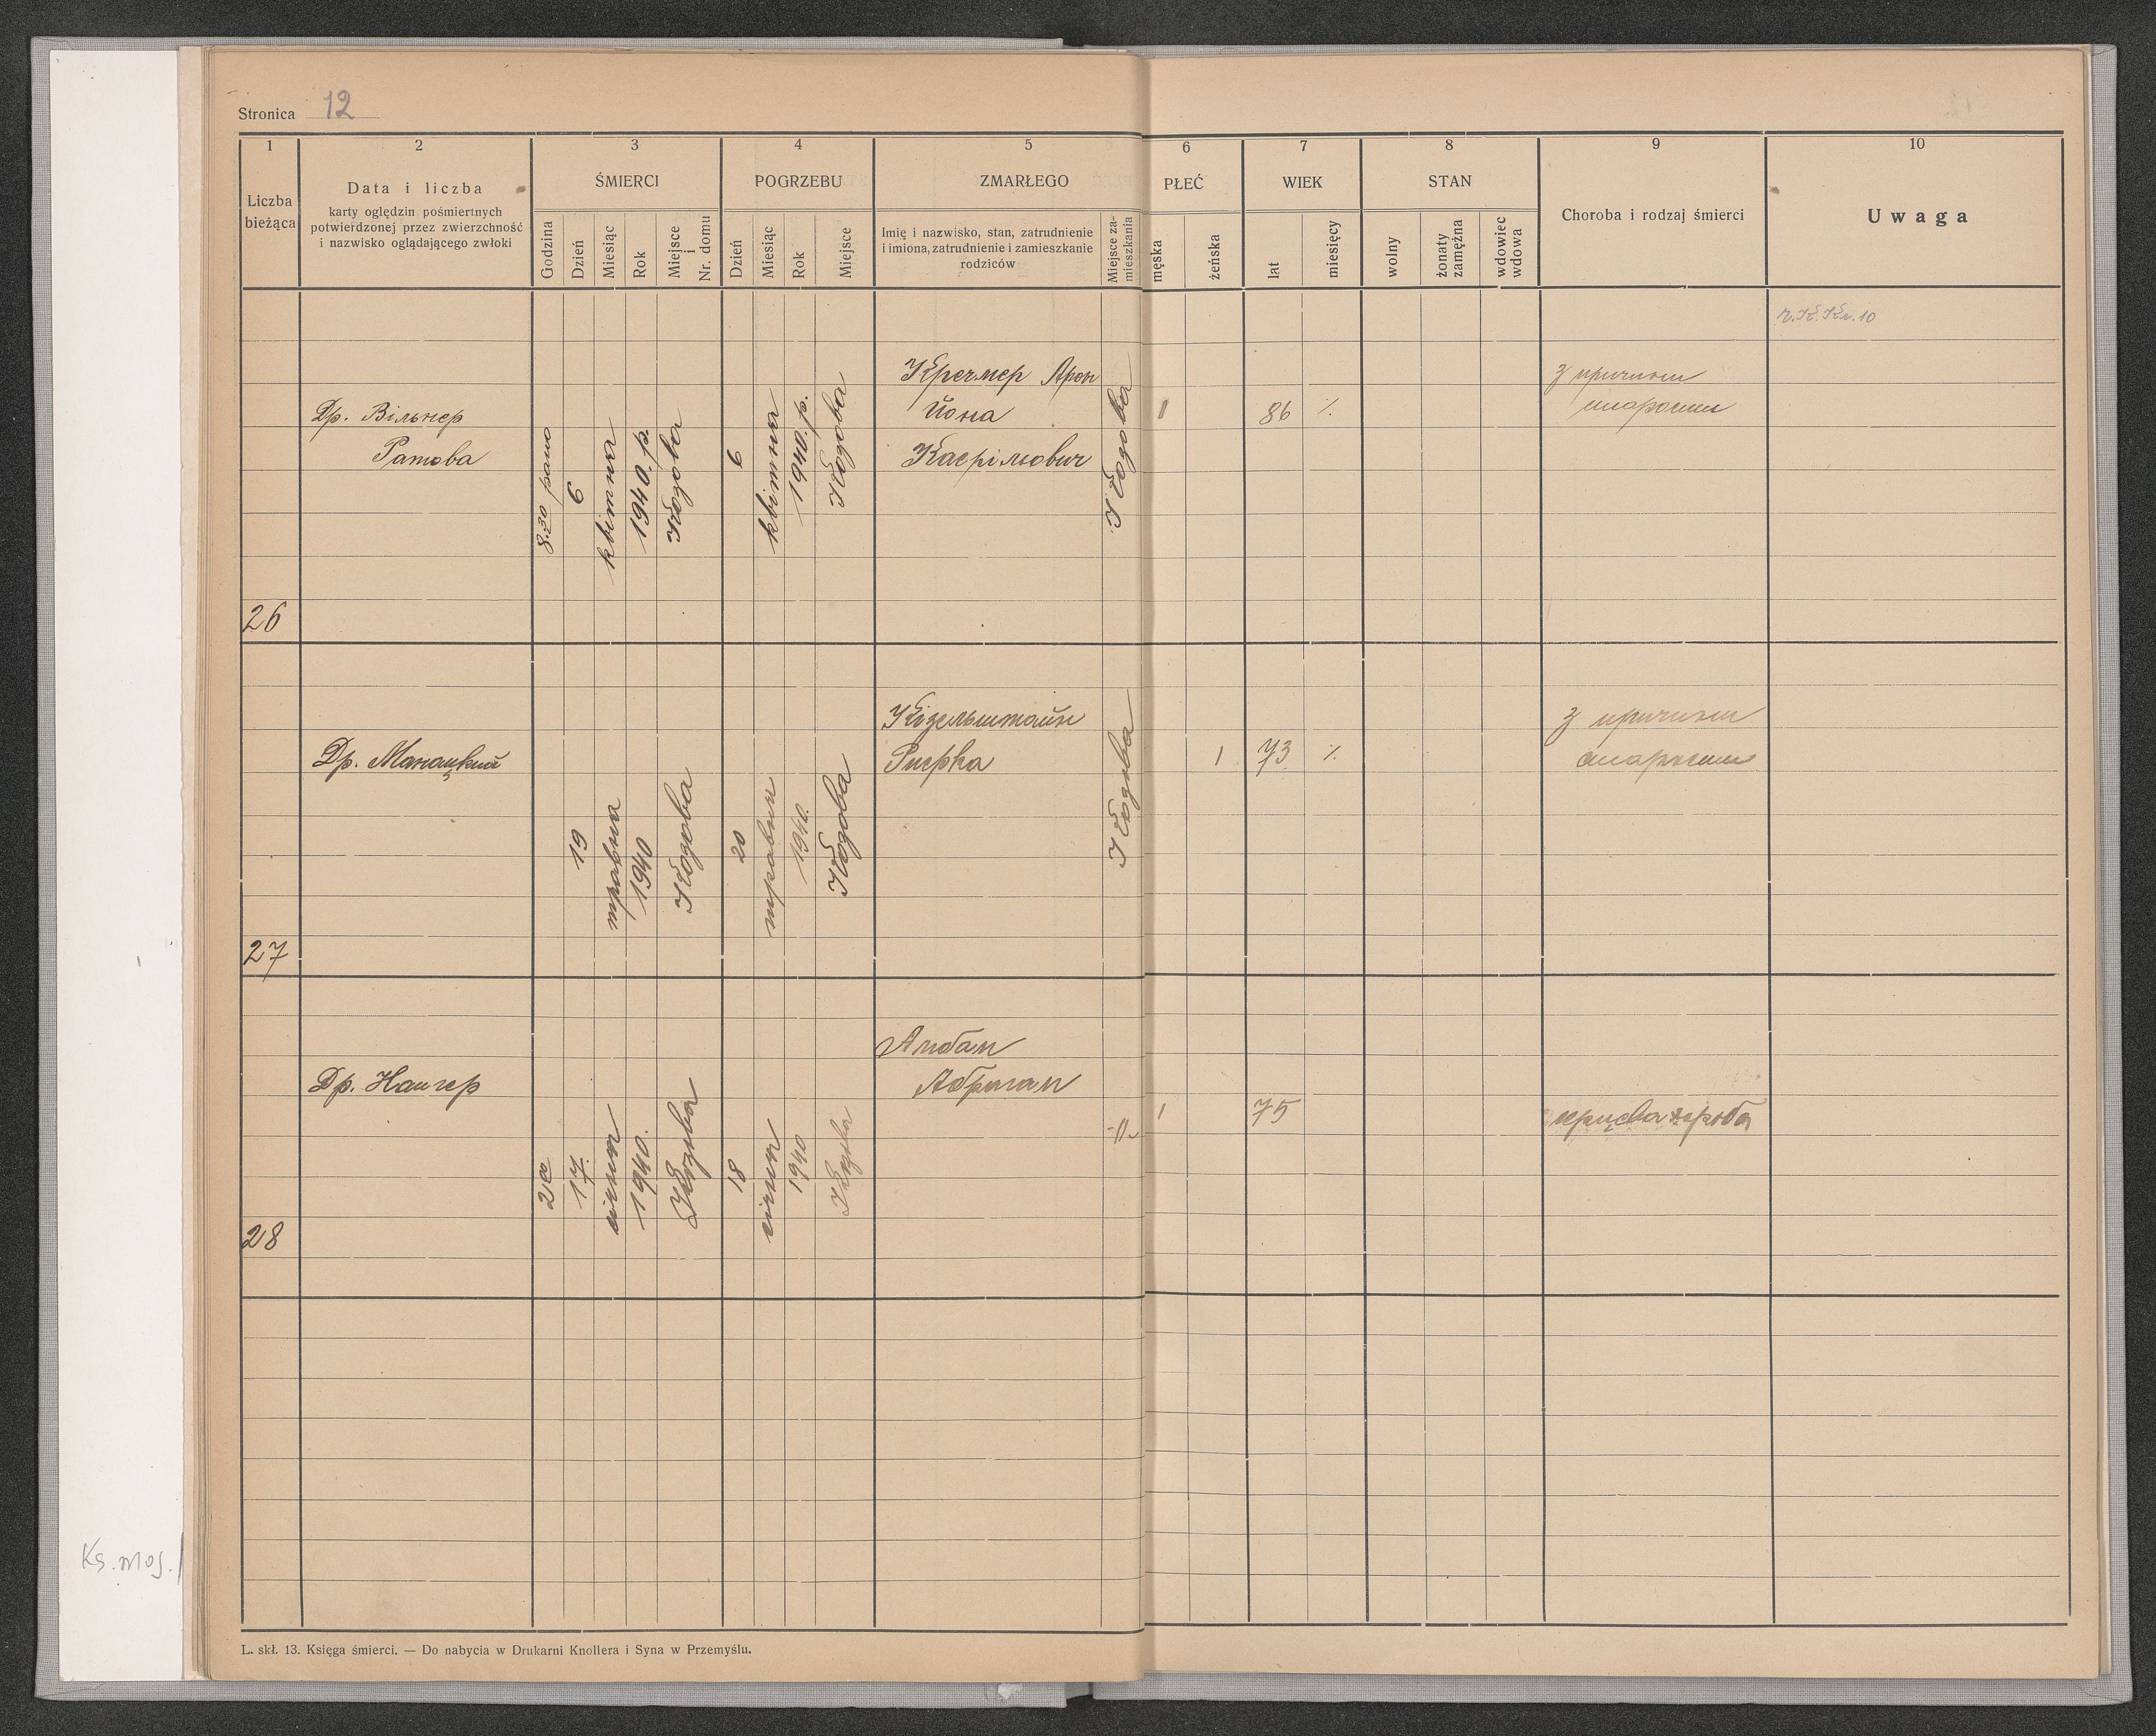 Stronica 12
1
2
3
4
5
6
7
8
9
10
Liczba
bieżąca
Data i liczba
karty oględzin pośmiertnych
potwierdzonej przez zwierzchność
i nazwisko oglądającego zwłoki
ŚMIERCI
Godzina
Dzień
Miesiąc
Rok
Miejsce
i
Nr. domu
POGRZEBU
Dzień
Miesiąc
Rok
Miejsce
ZMARŁEGO
Imię i nazwisko, stan, zatrudnienie
i imiona, zatrudnienie i zamieszkanie
rodziców
Miejsce za-
mieszkania
PŁEĆ
męska
żeńska
WIEK
lat
miesięcy
STAN
wolny
żonaty
zamężna
wdowiec
wdowa
Choroba i rodzaj śmierci
Uwaga
26
Др. Вільнер
Ратова
8.30 рано
6
квітня
1940. р.
Кодова
6
квітня
1940. р.
Кодова
Кремер Арон
Йона
Каспрільович
Кодова
1
86
з причини
старости
27
Др. Манацкий
19
травня
1940
Кодова
20
травня
1940.
Кодова
Кізельштайн
Ривка
Кодова
1
73
з причини
старости
28
2 00
17.
січня
1940.
Кодова
18
січня
1940
Кодова
Абрагам
-"-
1
75
L. skł. 13. Księga śmierci. — Do nabycia w Drukarni Knollera i Syna w Przemyślu.
Ks. moj.